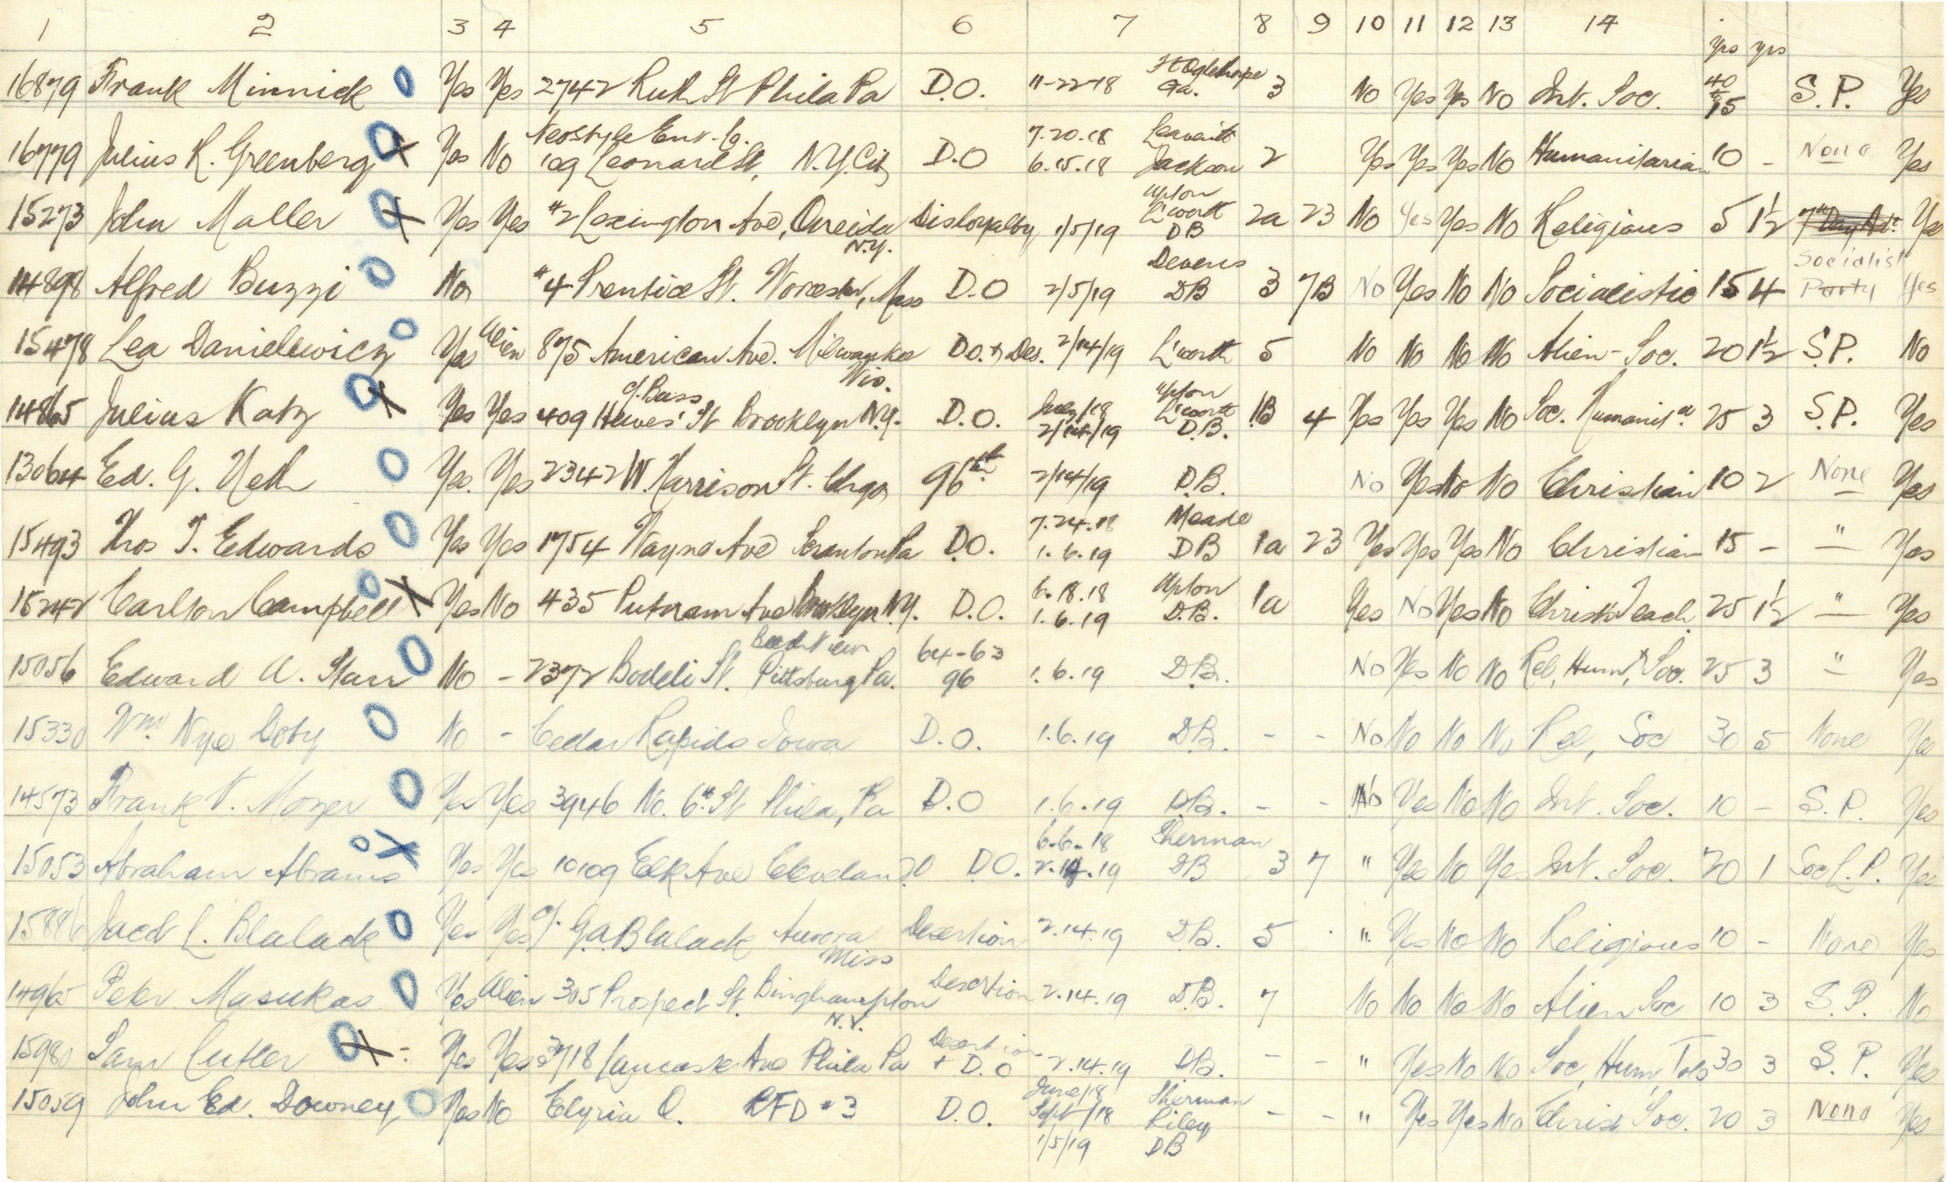 1 2 3 4 5 6 7 8 9 10 11 12 13 14 yrs yrs
16879 Frank Minnick O Yes Yes 2742 Ruth St Phila Pa D.O. 11-22-18 Ft Oglethorpe Ga. 3 No Yes Yes No Int. Soc. 15 S.P. Yes
16779 Julius R. Greenberg O X Yes No Neostyle Env. Co. 109 Leonard St, N.Y. City D.O 7.20.18 6.15.18 Jackson 2 Yes Yes Yes No Humanitarian 10 - None Yes
15273 John Maller O X Yes Yes #2 Lexington Ave, Oneida N.Y. Disloyalty 1/5/19 Upton L'worth DB 2a 23 No Yes Yes No Religious 5 1½ Yes
14898 Alfred Buzzi O No #4 Prentice St. Worcester, Mass D.O 2/5/19 Devens DB 3 7B No Yes No No Socialistic 15 4 Socialist Party Yes
15478 Lea Danielewicz O Yes Alien 875 American Ave. Milwaukee Wis. D.O. & Des. 2/14/19 L'worth 5 No No No No Alien-Soc. 20 1½ S.P. No
14865 Julius Katz O X Yes Yes c/o Bass 409 Hewes' St Brooklyn N.Y. D.O. July/18 2/14/19 Upton L'worth D.B. 1B 4 Yes Yes Yes No Soc. Humanit. 25 3 S.P. Yes
13064 Ed. G. Neth O Yes. Yes 2342 W. Harrison St. Chgo 96th 2/14/19 D.B. No Yes No No Christian 10 2 None Yes
15493 Thos T. Edwards O Yes Yes 1754 Wayne Ave Scranton Pa D.O. 7.24.18 1.6.19 Meade DB 1a 23 Yes Yes Yes No Christian 15 - " Yes
15242 Carlton Campbell O X Yes No 435 Putnam Ave Brooklyn N.Y. D.O. 6.18.18 1.6.19 Upton D.B. 1a Yes No Yes No Christ's Teach. 25 1½ " Yes
15056 Edward A. Starr O No - 2372 St. Pittsburg Pa. 64-63 96 1.6.19 D.B. No Yes No No Rel, Hum, Soc. 25 3 " Yes
15330 Wm. Nye Doty O No - Cedar Rapids Iowa D.O. 1.6.19 D.B. - - No No No No Rel, Soc 30 5 None Yes
14573 Frank V. Mozer O Yes Yes 3946 No. 6th St Phila, Pa D.O 1.6.19 D.B. - - No Yes No No Int. Soc. 10 - S.P. Yes
15053 Abraham Abrams O X Yes Yes 10109 Elk Ave Cleveland O D.O. 6.6.18 2.14.19 Sherman DB 3 7 " Yes No Yes Int. Soc. 20 1 Soc L.P. Yes
15886 Jacob L. Blalack O Yes Yes c/o G.A Blalack Aurora Miss Desertion 2.14.19 D.B. 5 - " Yes No No Religious 10 - None Yes
1496 Peter Masukas O Yes Alien 305 Prospect St. Binghampton N.Y. Desertion 2.14.19 D.B. 7 No No No No Alien Soc 10 3 S.P. No
15980 Sam Cutler O X - Yes Yes 3718 Lancaster Ave Phila Pa Desertion + D.O 2.14.19 D.B. - - " Yes No No Soc, Hum, Tols 30 3 S.P. Yes
15059 John Ed. Downey O Yes No Elyria O. RFD #3 D.O. June/18 Sept/18 1/5/19 Sherman Riley DB - - " Yes Yes No Christ Soc. 20 3 None Yes